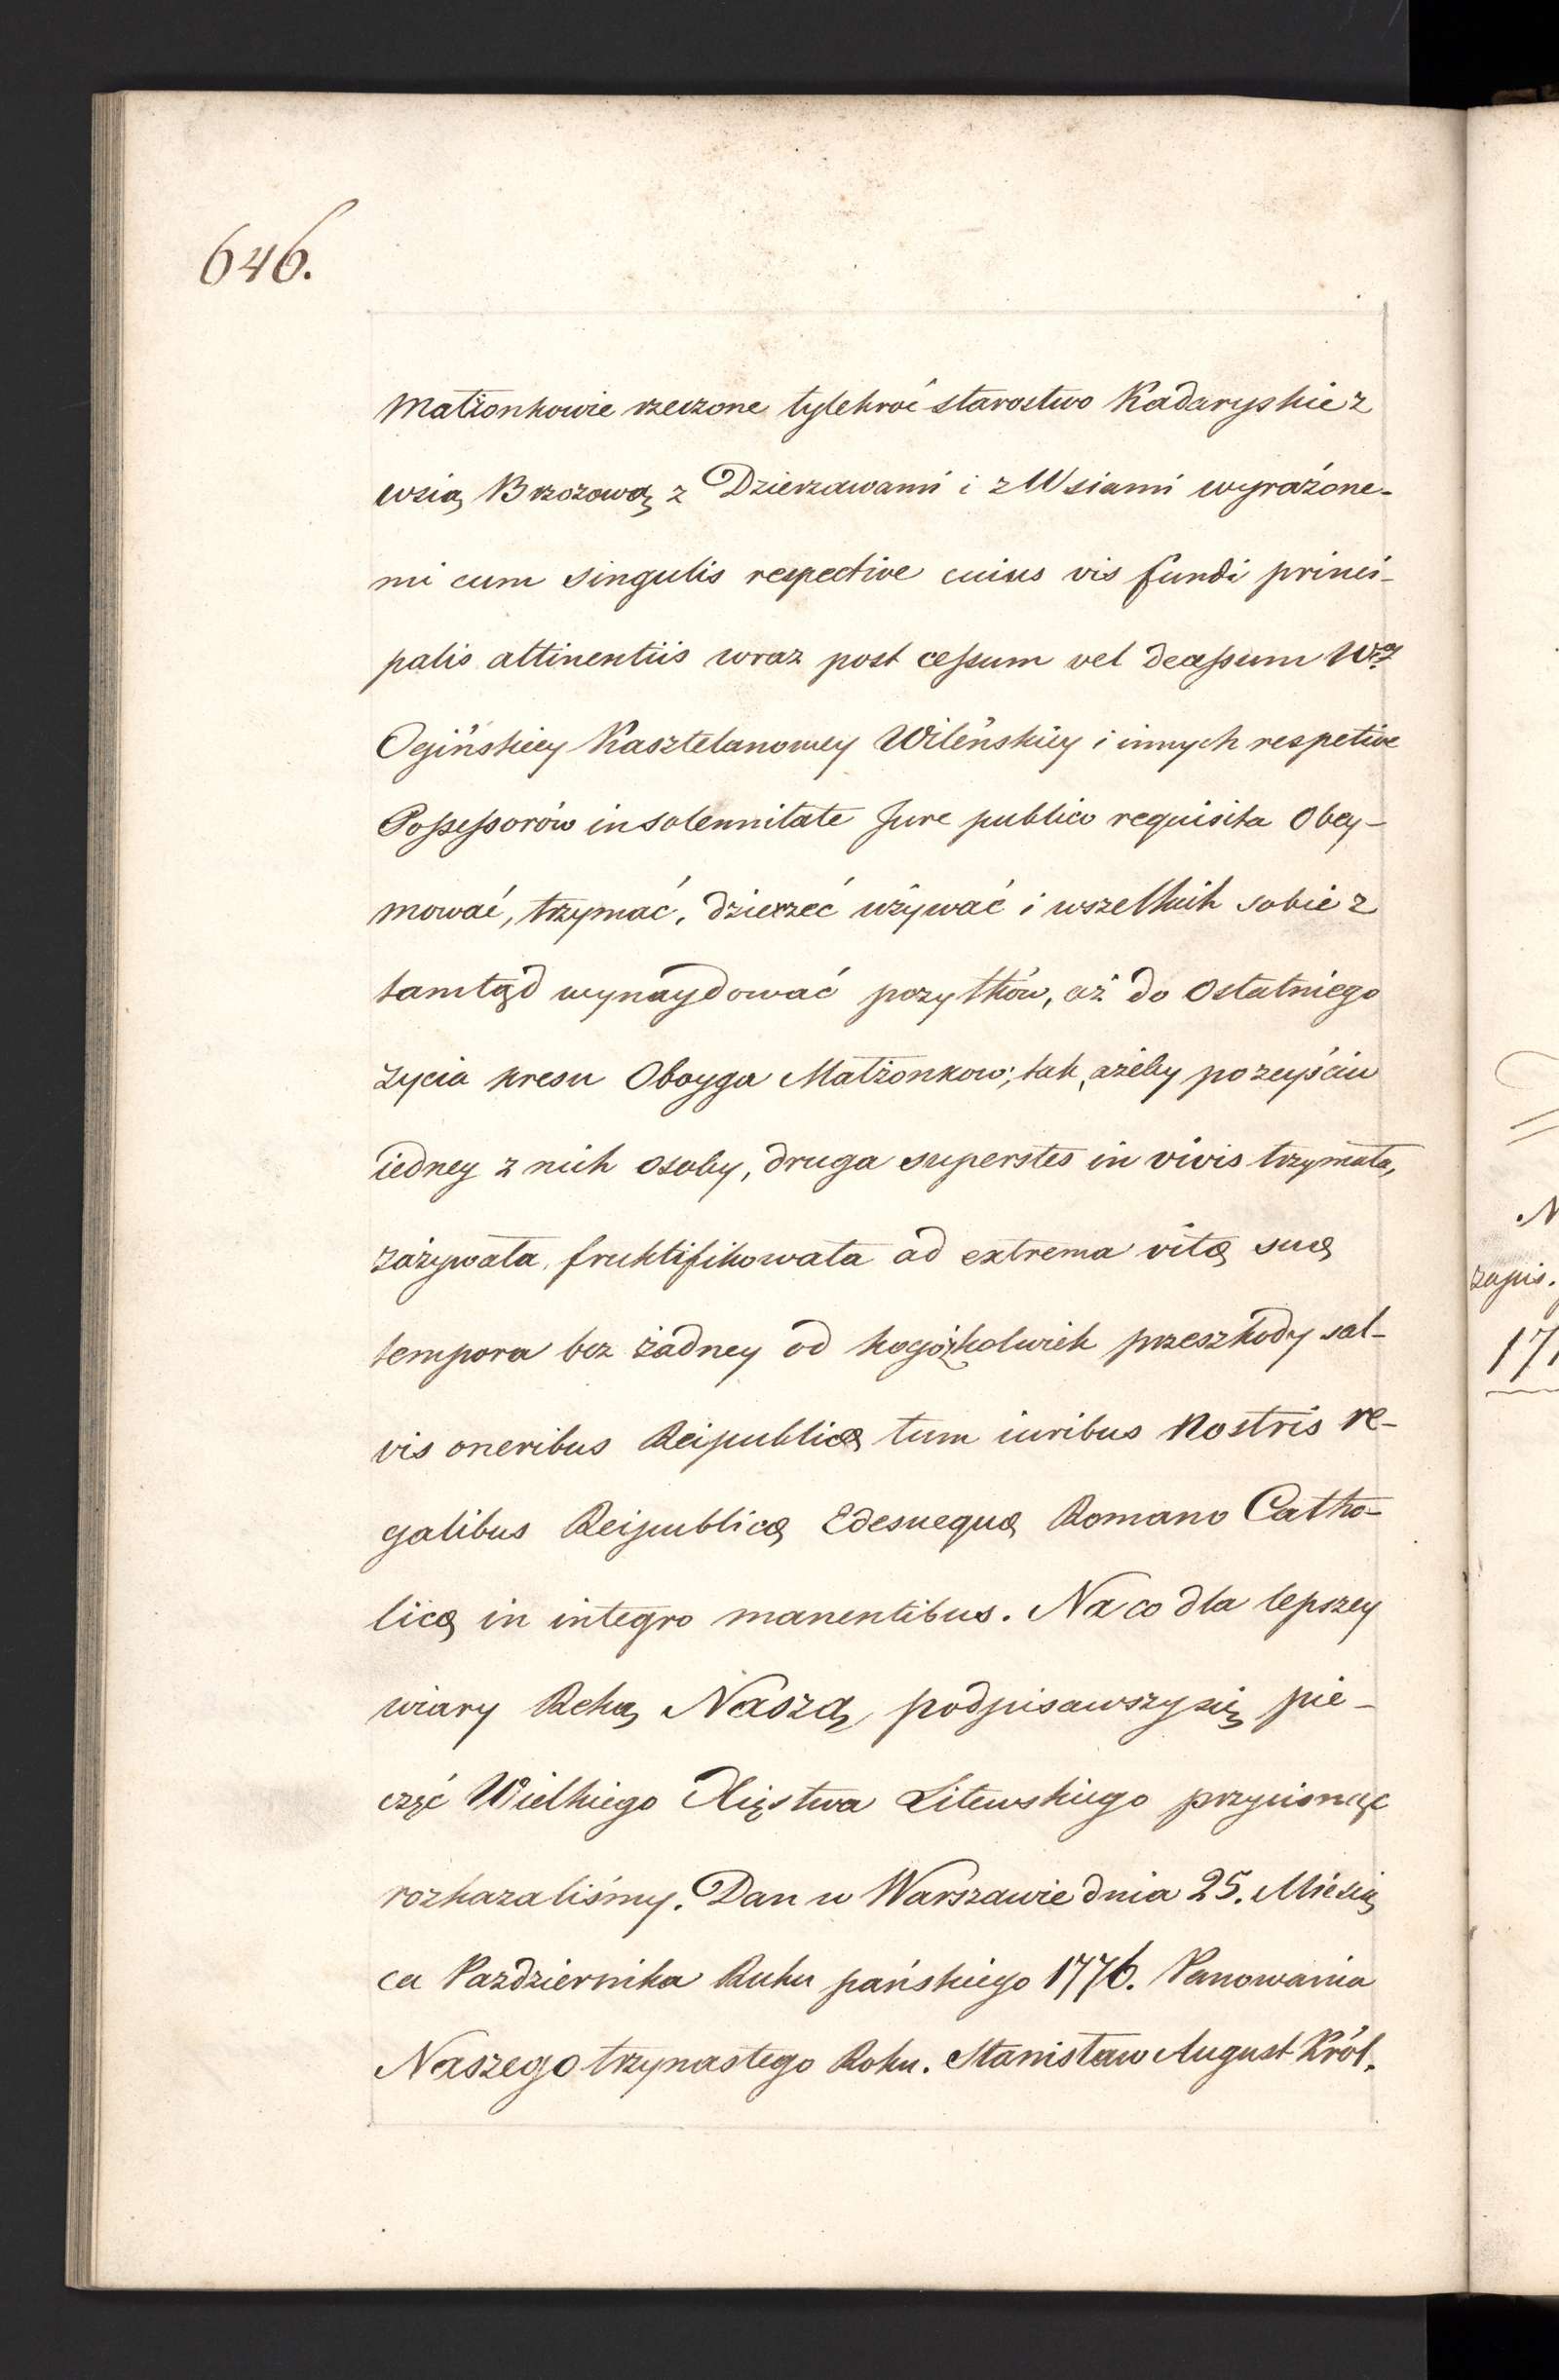 646.
Małżonkowie rzeczone tylekroć starostwo Kadaryskie z
wsią Brzozową z Dzierzawami i z Wsiami wyraźone-
mi cum singulis respective cuius vis fundi princi-
palis attinentiis wraz post cessum vel decessum Wey
Ogińskiey Kasztelanowey Wileńskiey i innych respetive
Possessorów in solennitate Jure publico requisita Obey-
mować, trzymać, dzierzeć używać i wszelkich sobie z
tamtąd wynaydować pozytków, aż do Ostatniego
zycia kresu Oboyga Małżonkow; tak, ażeby po zeyściu
iedney z nich osoby, druga superstes in vivis trzymała,
zażywała, fruktifikowała ad extrema vitę suę
tempora bez żadney od kogóżkolwiek przeszkody sal-
vis oneribus Reipublicę tum iuribus Nostris re-
galibus Reipublicę Edesuequę Romano Catho-
licę in integro manentibus. Na co dla lepszey
wiary Ręką Naszą podpisawszy się, pie-
częć Wielkiego Xięstwa Litewskiego przycisnąć
rozkazaliśmy. Dan w Warszawie dnia 25. Miesią
ca Pazdziernika Roku pańskiego 1776. Panowania
Naszego trzynastego Roku. Stanisław August Król.
N
zapis.
171